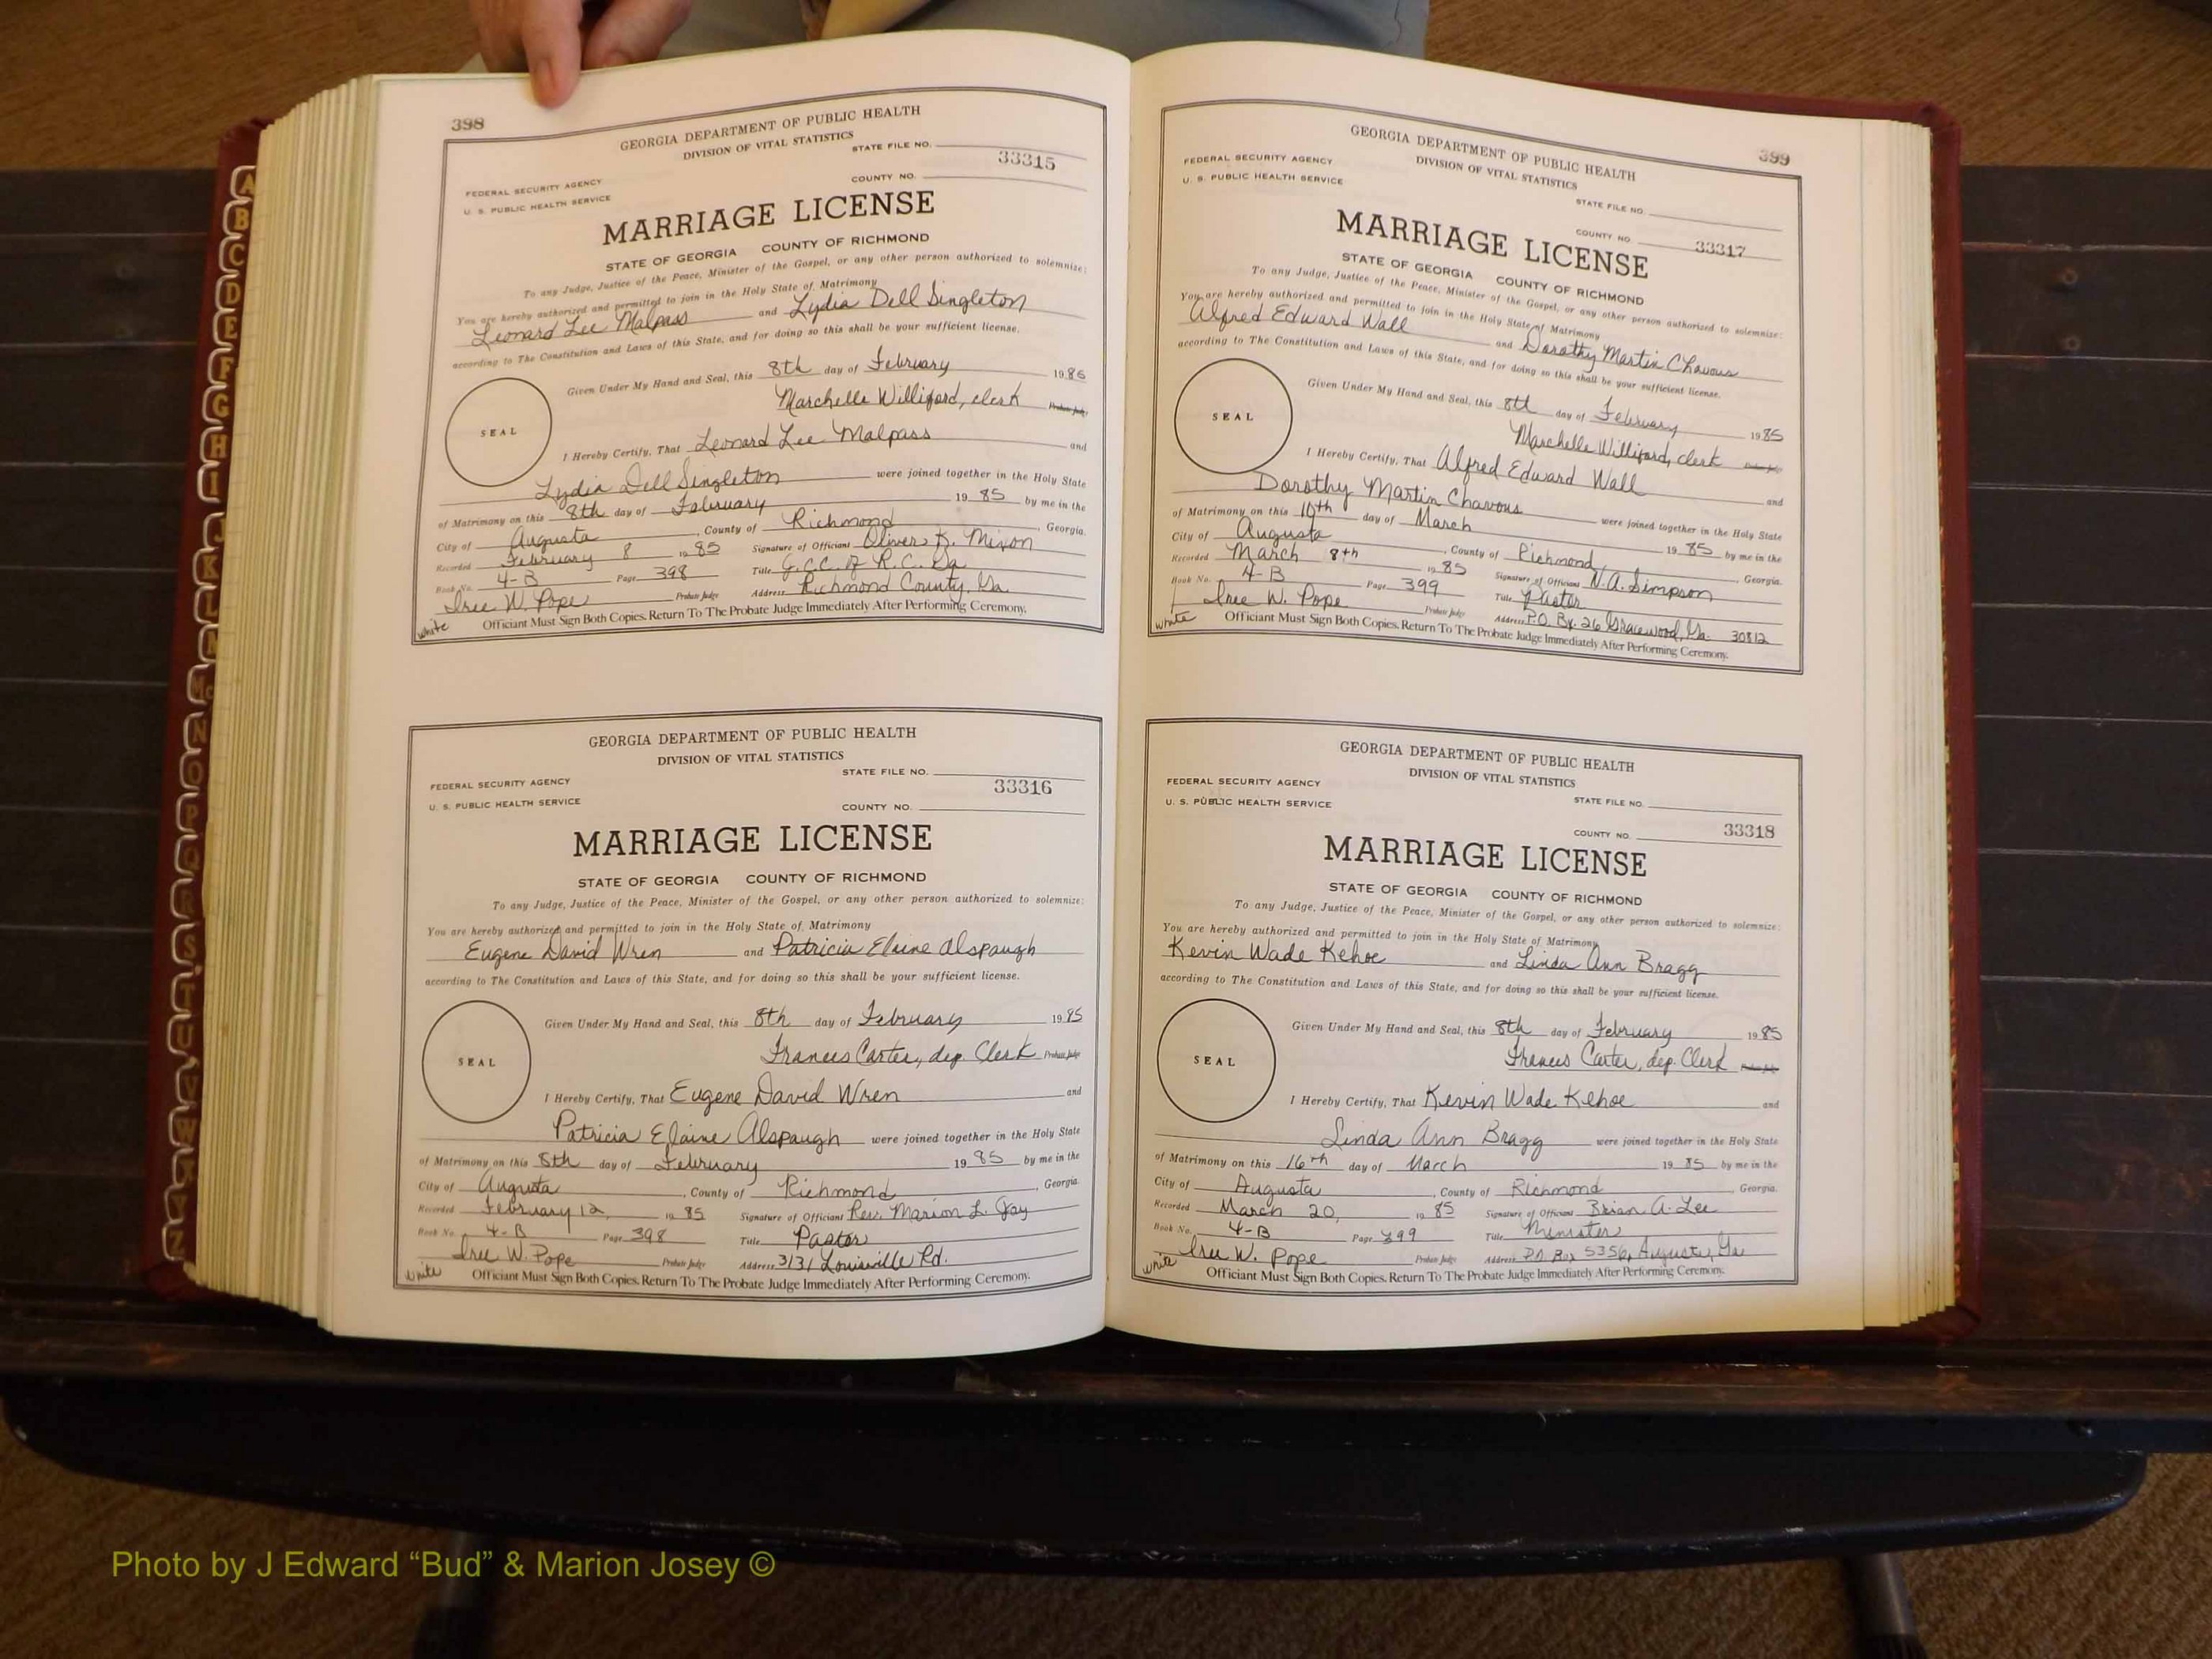 398
GEORGIA DEPARTMENT OF PUBLIC HEALTH
DIVISION OF VITAL STATISTICS
STATE FILE NO.
33315
FEDERAL SECURITY AGENCY
U. S. PUBLIC HEALTH SERVICE
COUNTY NO.
MARRIAGE LICENSE
STATE OF GEORGIA COUNTY OF RICHMOND
To any Judge, Justice of the Peace, Minister of the Gospel, or any other person authorized to solemnize:
You are hereby authorized and permitted to join in the Holy State of Matrimony
Leonard Lee Malpass and Lydia Dell Singleton
according to The Constitution and Laws of this State, and for doing so this shall be your sufficient license.
Given Under My Hand and Seal, this 8th day of February 1985
Marchelle Williford, clerk Probate Judge
SEAL
I Hereby Certify, That Leonard Lee Malpass and
Lydia Dell Singleton were joined together in the Holy State
of Matrimony on this 8th day of February 19 85 by me in the
City of Augusta, County of Richmond, Georgia.
Recorded February 8 19 85 Signature of Officiant Oliver K. Mixon
Book No. 4-B Page 398 Title
Iree W. Pope Probate Judge Address Richmond County, Ga.
white Officiant Must Sign Both Copies. Return To The Probate Judge Immediately After Performing Ceremony.
GEORGIA DEPARTMENT OF PUBLIC HEALTH
DIVISION OF VITAL STATISTICS
STATE FILE NO.
33316
FEDERAL SECURITY AGENCY
U. S. PUBLIC HEALTH SERVICE
COUNTY NO.
MARRIAGE LICENSE
STATE OF GEORGIA COUNTY OF RICHMOND
To any Judge, Justice of the Peace, Minister of the Gospel, or any other person authorized to solemnize:
You are hereby authorized and permitted to join in the Holy State of Matrimony
Eugene David Wren and Patricia Elaine Alspaugh
according to The Constitution and Laws of this State, and for doing so this shall be your sufficient license.
Given Under My Hand and Seal, this 8th day of February 1985
Frances Carter, dep. Clerk Probate Judge
SEAL
I Hereby Certify, That Eugene David Wren and
Patricia Elaine Alspaugh were joined together in the Holy State
of Matrimony on this 8th day of February 19 85 by me in the
City of Augusta, County of Richmond, Georgia.
Recorded February 12, 19 85 Signature of Officiant Rev. Marion L. Gay
Book No. 4-B Page 398 Title Pastor
Iree W. Pope Probate Judge Address 3131 Louisville Rd.
white Officiant Must Sign Both Copies. Return To The Probate Judge Immediately After Performing Ceremony.
399
GEORGIA DEPARTMENT OF PUBLIC HEALTH
DIVISION OF VITAL STATISTICS
FEDERAL SECURITY AGENCY
U. S. PUBLIC HEALTH SERVICE
STATE FILE NO.
COUNTY NO. 33317
MARRIAGE LICENSE
STATE OF GEORGIA COUNTY OF RICHMOND
To any Judge, Justice of the Peace, Minister of the Gospel, or any other person authorized to solemnize:
You are hereby authorized and permitted to join in the Holy State of Matrimony
Alfred Edward Wall and Dorothy Martin Chavous
according to The Constitution and Laws of this State, and for doing so this shall be your sufficient license.
Given Under My Hand and Seal, this 8th day of February 1985
Marchelle Williford, clerk Probate Judge
SEAL
I Hereby Certify, That Alfred Edward Wall and
Dorothy Martin Chavous were joined together in the Holy State
of Matrimony on this 10th day of March 19 85 by me in the
City of Augusta, County of Richmond, Georgia.
Recorded March 8th 19 85 Signature of Officiant N.A. Simpson
Book No. 4-B Page 399 Title Pastor
Iree W. Pope Probate Judge Address P.O. Bx. 26 Gracewood, Ga. 30812
white Officiant Must Sign Both Copies. Return To The Probate Judge Immediately After Performing Ceremony.
GEORGIA DEPARTMENT OF PUBLIC HEALTH
DIVISION OF VITAL STATISTICS
FEDERAL SECURITY AGENCY
U. S. PUBLIC HEALTH SERVICE
STATE FILE NO.
COUNTY NO. 33318
MARRIAGE LICENSE
STATE OF GEORGIA COUNTY OF RICHMOND
To any Judge, Justice of the Peace, Minister of the Gospel, or any other person authorized to solemnize:
You are hereby authorized and permitted to join in the Holy State of Matrimony
Kevin Wade Kehoe and Linda Ann Bragg
according to The Constitution and Laws of this State, and for doing so this shall be your sufficient license.
Given Under My Hand and Seal, this 8th day of February 1985
Frances Carter, dep. Clerk Probate Judge
SEAL
I Hereby Certify, That Kevin Wade Kehoe and
Linda Ann Bragg were joined together in the Holy State
of Matrimony on this 16th day of March 19 85 by me in the
City of Augusta, County of Richmond, Georgia.
Recorded March 20, 19 85 Signature of Officiant Brian A. Lee
Book No. 4-B Page 399 Title Minister
Iree W. Pope Probate Judge Address P.O. Box 5356, Augusta, Ga
white Officiant Must Sign Both Copies. Return To The Probate Judge Immediately After Performing Ceremony.
Photo by J Edward “Bud” & Marion Josey ©